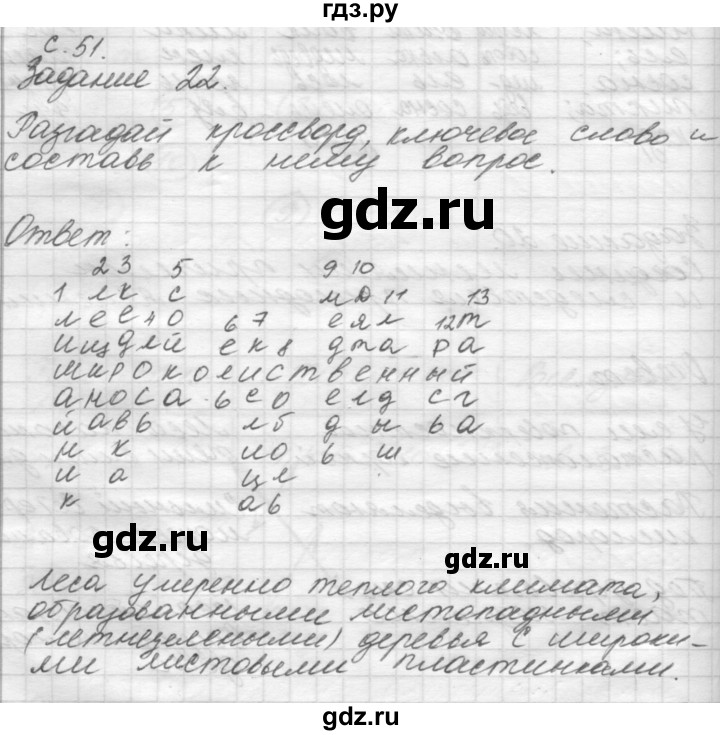 гдз.ру
с. 51.
Задание 22.
Разгадай кроссворд, ключевое слово и
составь к нему вопрос.
gdz.ru
Ответ:
2 3 5 9 10
1 л к с м д 11 13
л е е 4 о 6 7 е я л 12 т
и щ д л й е к 8 д т а р а
ш и р о к о л и с т в е н н ы й
а н о с а ь е о е л д с г
й а в ь л б д ы ь а
н к и о ь ш
и а ц л
к а ь
gdz.ru
gdz.ru
Леса умеренно теплого климата,
образованными листопадными
(летнезелеными) деревья с широки-
ми листовыми пластинками.
gdz.ru